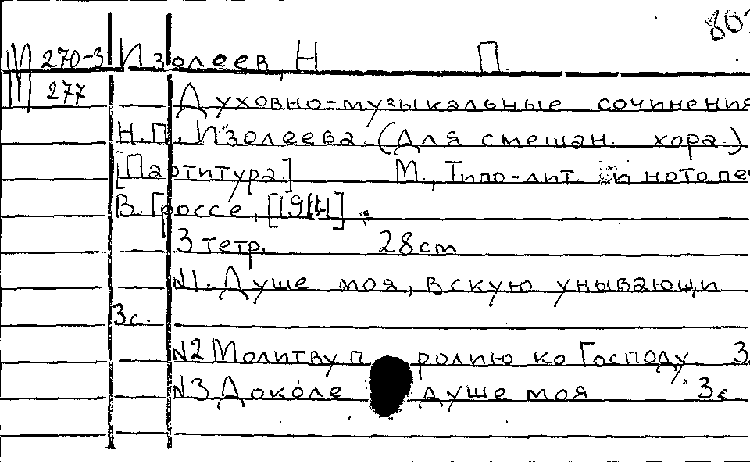 80
М 270-3 Изолеев, Н П.
277
Духовно-музыкальные сочинения
Н.П. Изолеева. (Для смешан. хора.)
[Партитура.] М., Типо-лит. и нотопеч
В. Гроссе, [1914].
3 тетр. 28cm
N1. Душе моя, вскую унывающи
3с.
N2 Молитву п ролию ко Господу 3
N3 Доколе душе моя 3с